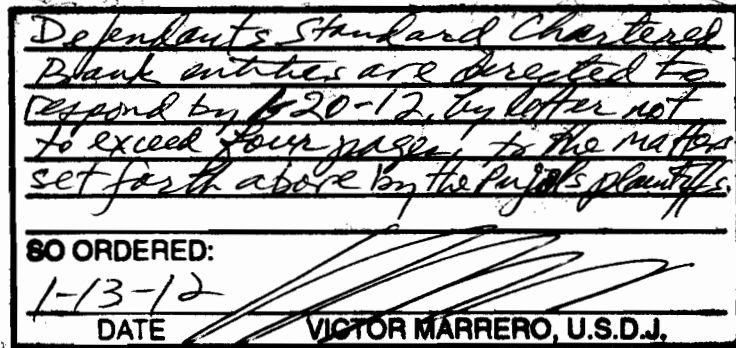 Defendants Standard Chartered
Bank entities are directed to
respond by 1-20-12, by letter not
to exceed four pages, to the matters
set forth above by the Pujols plaintiffs.
SO ORDERED:
1-13-12
DATE VICTOR MARRERO, U.S.D.J.